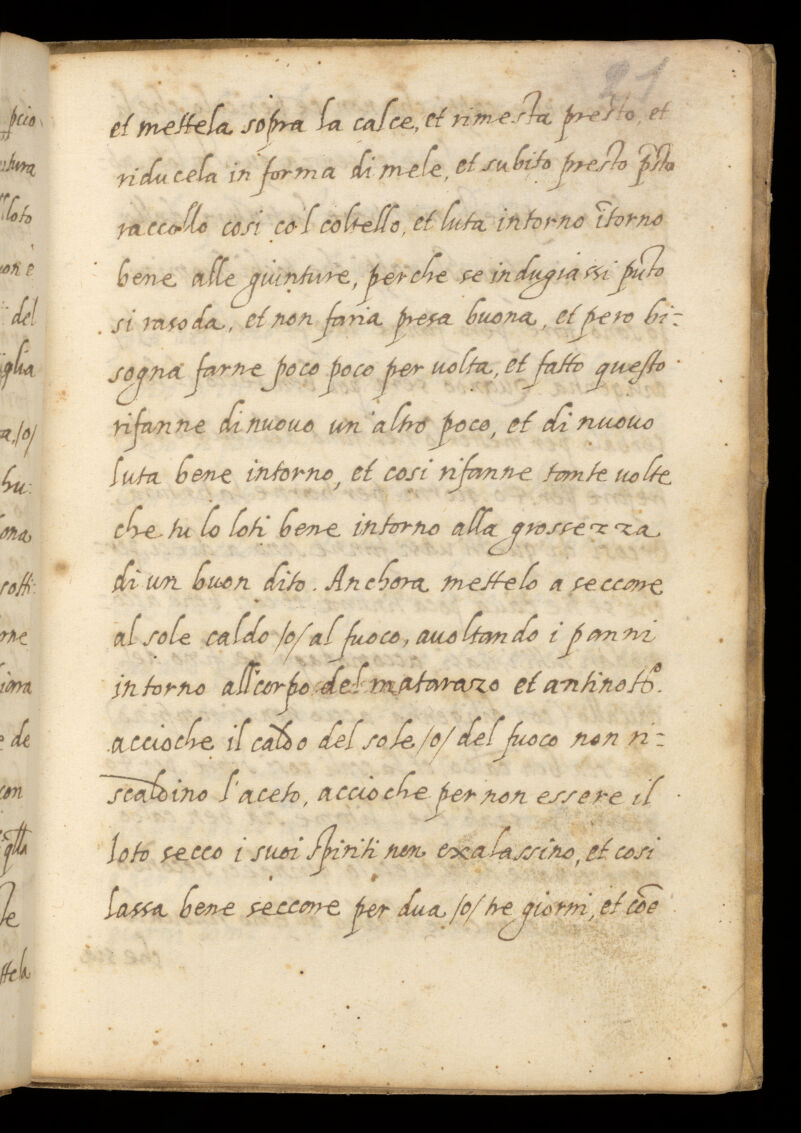 21
et mettela sopra la calce, et rimesta presto, et
riducela in forma di mele, et subito presto p̄sto
raccollo cosi co'l coltello, et luta intorno ītorno
bene alle giunture, perche se indugiassi pūto
si rasoda, et non faria presa buona, et pero bi-:
sogna farne poco poco per uolta, et fatto questo
rifanne di nuouo un'altro poco, et di nuouo
luta bene intorno, et cosi rifanne tante uolte
che tu lo loti bene intorno alla grossezza
di un buon dito. Anchora mettelo a seccare
al sole caldo /o/ al fuoco, auoltando i panni
intorno all'corpo del matarazo et antinottº.
accioche il caldo del sole /o/ del fuoco non ri-:
scaldino l'aceto, accioche per non essere il
loto secco i suoi spiriti non exalassino, et cosi
lassa bene seccare per dua /o/ tre giorni, et cōe
pcio
loto
del
glia
a /o/
hu:
ona
sotti:
e de
con
q̄lla
te
ttela